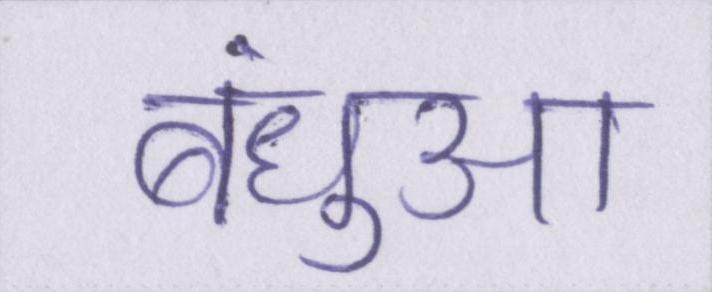 बंधुआ